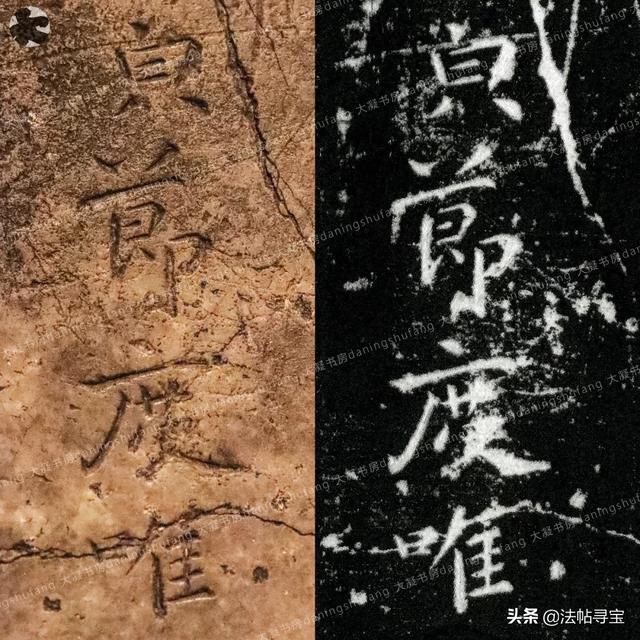 貞節度唯
貞節度唯
大凝书房daningshufang
头条 @法帖寻宝